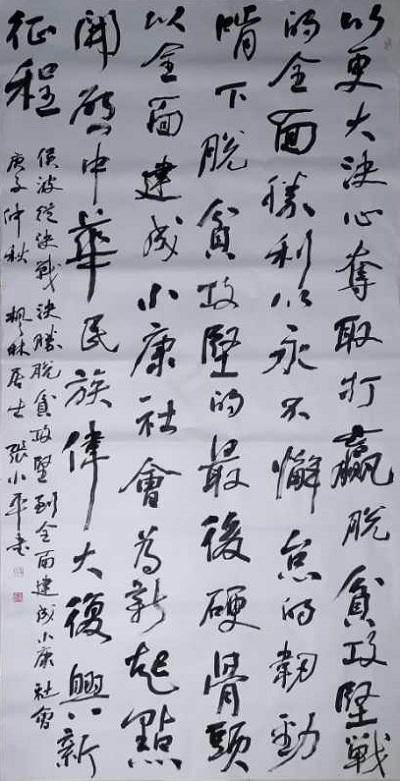 以更大決心奪取打贏脫貧攻堅戰
的全面勝利以永不懈怠的韌勁
啃下脫貧攻堅的最後硬骨頭
以全面建成小康社會為新起點
開啟中華民族偉大復興新
征程
侯波從決戰決勝脫貧攻堅到全面建成小康社會
庚子仲秋 楓林居士 張小平書